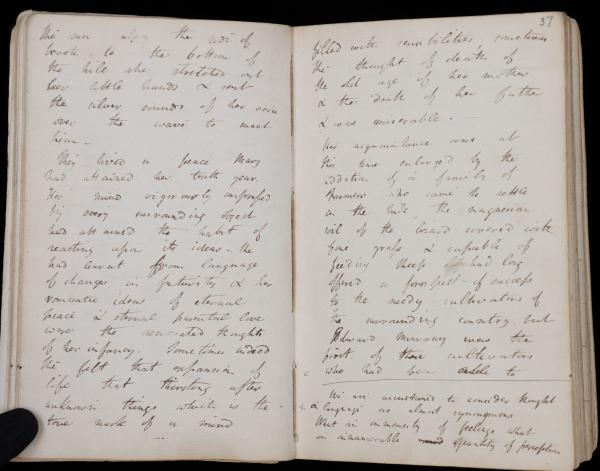 She ran along the side of
brook - to the bottom of
the hill she stretched out
her little hands & sent
the silver sounds of her voice
over the wave to meet
him -
They lived in peace Mary
had attained her tenth year.
Her mind vigorously impressed
by every surrounding object
had attained the habit of
reacting upon its ideas - she
had learnt from language
of changes in futurity & her
romantic ideas of eternal
peace & eternal parental love
were the thoughts
of her infancy. Sometimes indeed
she felt that expansion of
life that thirsting after
unknown things which is the
true mark of a mind
37
filled with sensibilities, sometimes
the thought of death of
the old age of her mother
& the death of her father
& was miserable. -
Her acquaintance were at
this time enlarged by the
addition of a family of
Farmers who came to settle
on the hill, the magnesian
soil of the Lizard covered with
fine grass & capable of
feeding sheep had long
offered a prospect of success
to the needy cultivators of
the surrounding country but
Edward Murray was the
first of these cultivators
who had been able to
We are accustomed to consider thought
& language as almost synonymous
What an immensity of feelings what
an innumerable quantity of perceptions